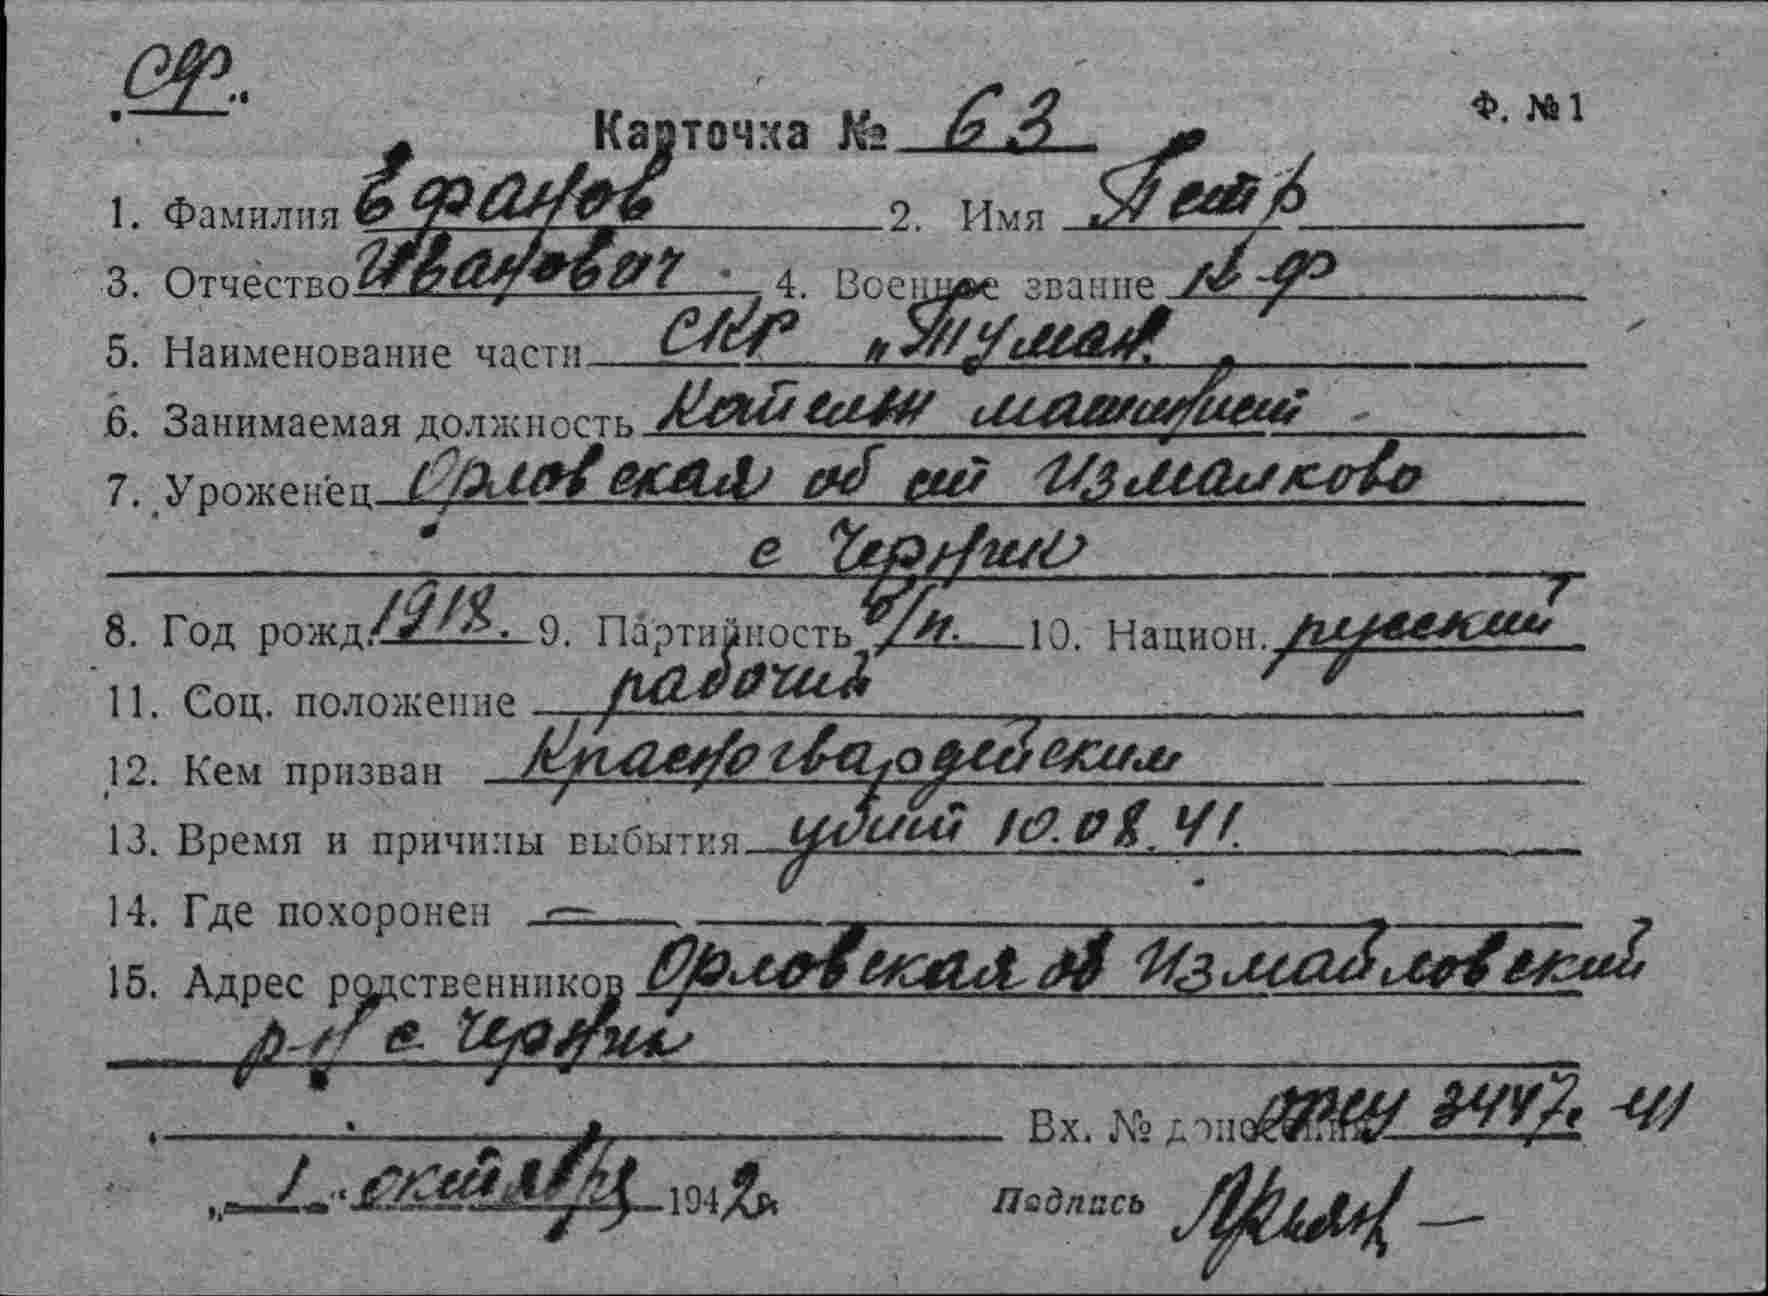 СФ.
Карточка № 63
Ф. №1
1. Фамилия Ефанов 2. Имя Петр
3. Отчество Иванович 4. Военное звание к-ф
5. Наименование части СКР „Туман"
6. Занимаемая должность Котельн машинист
7. Уроженец Орловская об ст Измалково
с Черник
8. Год рожд. 1918. 9. Партийность б/п. 10. Национ. русский
11. Соц. положение рабочий
12. Кем призван Красногвардейским
13. Время и причины выбытия убит 10.08.41.
14. Где похоронен —
15. Адрес родственников Орловская об Измайловский
р-н с. Черник
Вх. № донесения 3447. 41
„1" октября 1942г.
Подпись